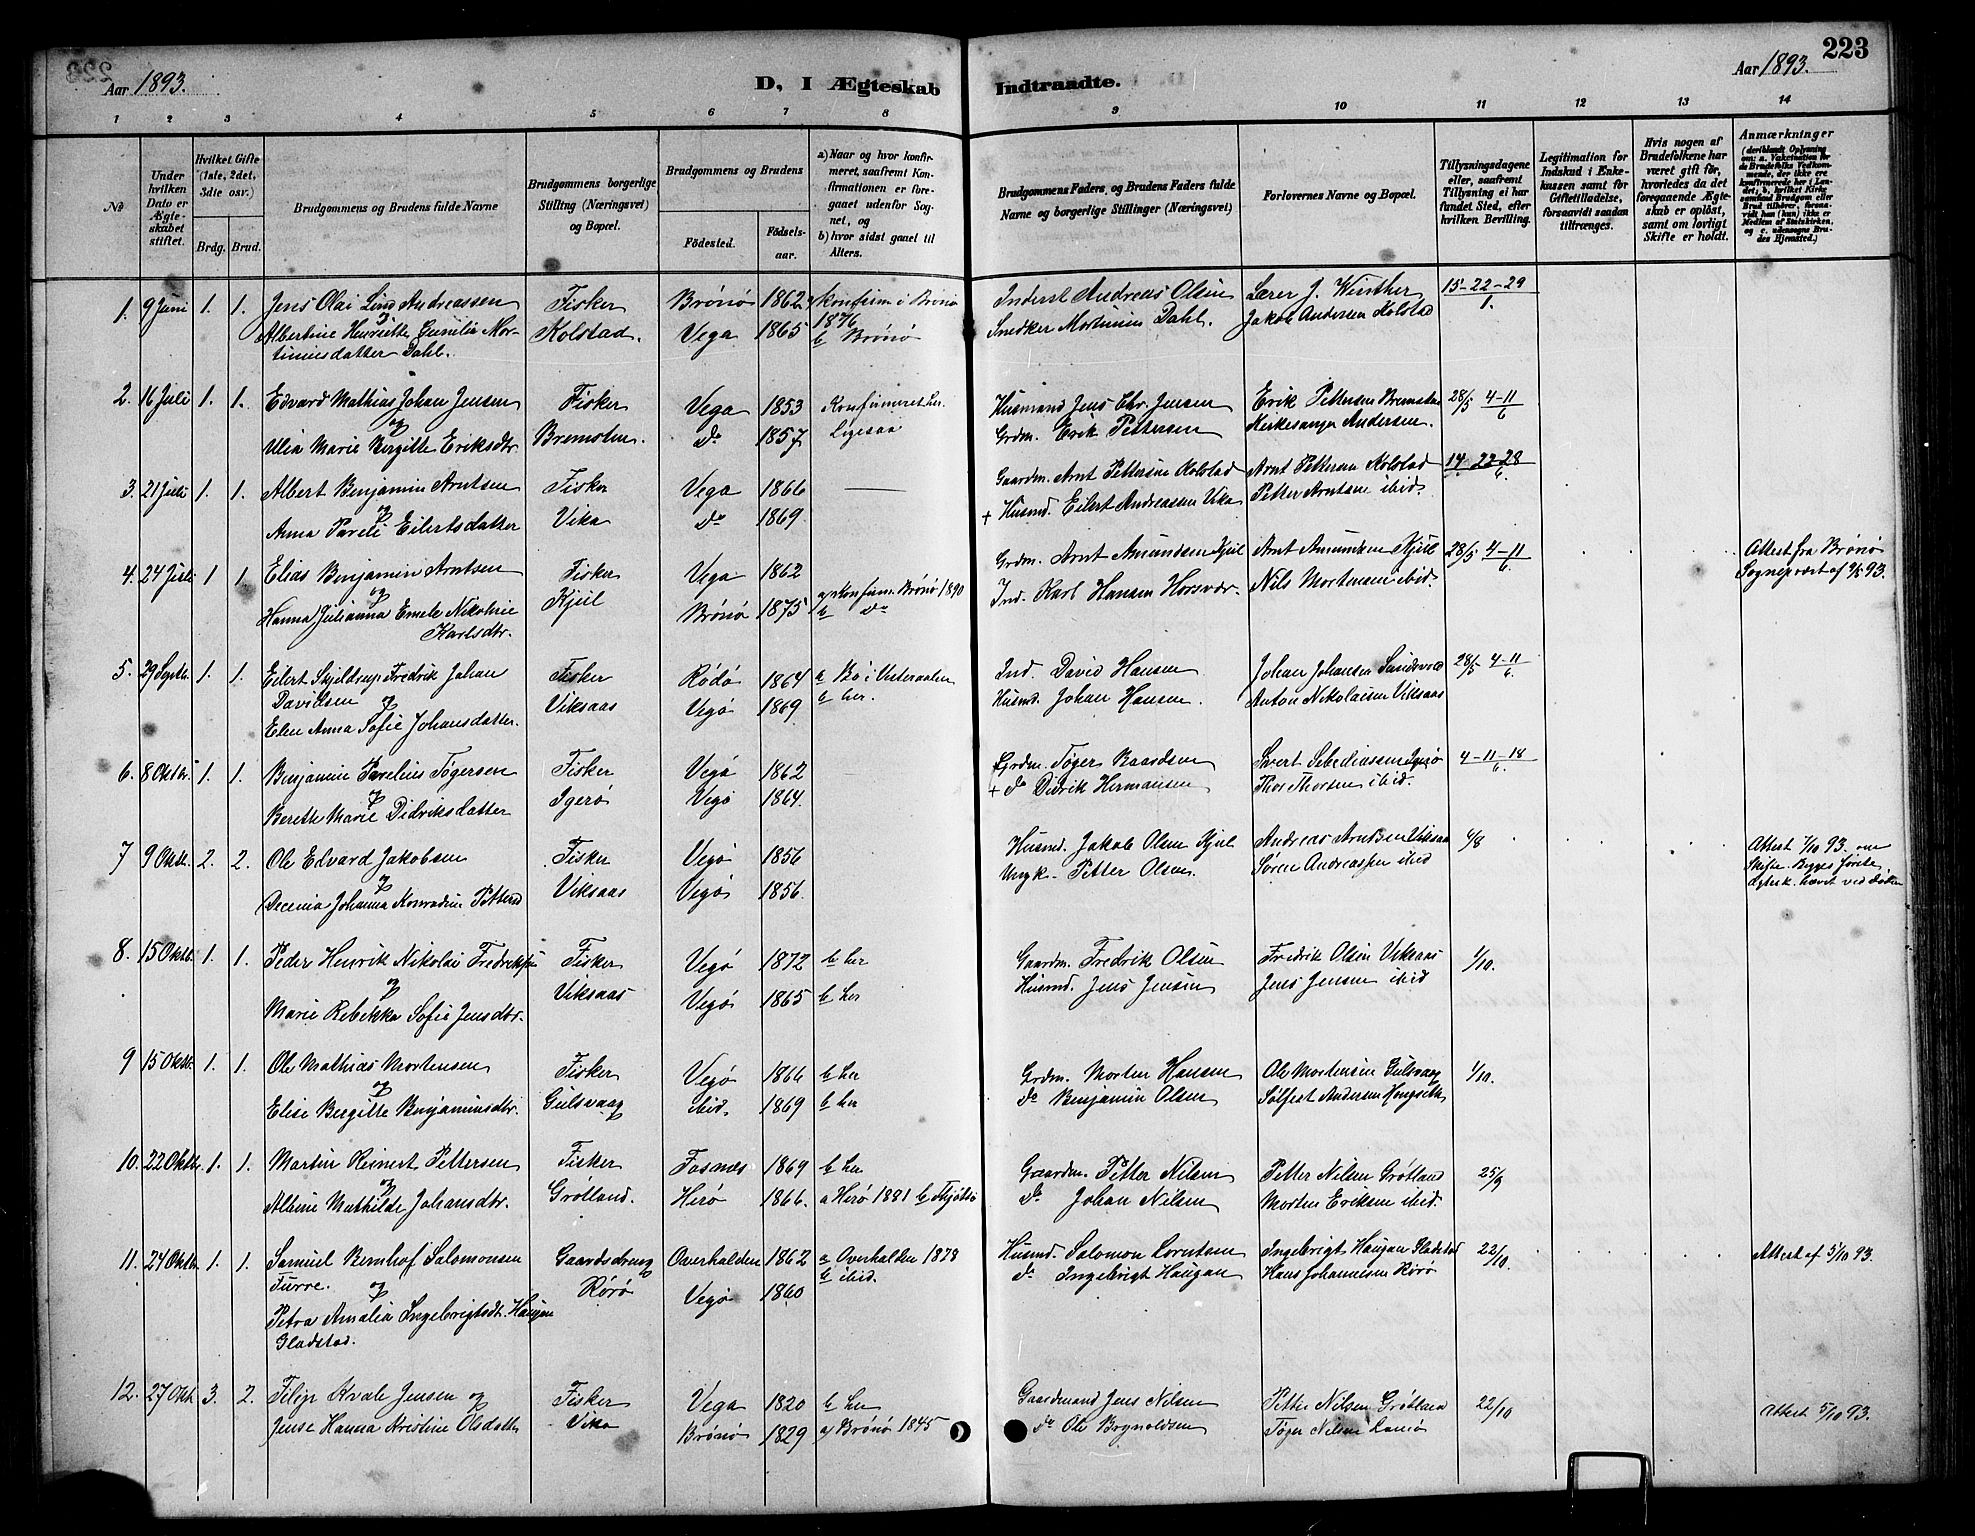 223
Aar 1893.
D, I Ægteskab Indtraadte.
Aar 1893.
1 2 3 4 5 6 7 8 9 10 11 12 13 14
No
Under hvilken Dato er Ægteskabet stiftet.
Hvilket Gifte (1ste, 2det, 3die osv.)
Brdg. Brud.
Brudgommens og Brudens fulde Navne
Brudgommens borgerlige Stilling (Næringsvei) og Bopæl.
Brudgommens og Brudens
Födested.
Födselsaar.
a) Naar og hvor konfirmeret, saafremt Konfirmationen er foregaaet udenfor Sognet, og
b) hvor sidst gaaet til Alters.
Brudgommens Faders, og Brudens Faders fulde Navne og borgerlige Stillinger (Næringsvei)
Forlovernes Navne og Bopæl.
Tillysningsdagene eller, saafremt Tillysning ei har fundet Sted, efter hvilken Bevilling.
Legitimation for Indskud i Enkekassen samt for Giftetilladelse, forsaavidt saadan tiltrænges.
Hvis nogen af Brudefolkene har været gift før, hvorledes da det foregaaende Ægteskab er opløst, samt om lovligt Skifte er holdt.
Anmærkninger
1. 9 Juni 1. 1. Jens Olai Lind Andreassen Fisker Brönö 1862 konfirm i Brönö 1876 Inderst Andreas Olsen Lærer J. Winther 15-22-29
Albertine Henriette Mortinusdatter Dahl. Kolstad. Vega 1865 b Brönö Snedker Mortinus Dahl. Jakob Andersen Kolstad 1.
2. 16 Juli 1. 1. Edvard Mathias Johan Jensen Fisker Vega 1853 Konfirmeret her. Husmand Jens Chr. Jensen Erik Pettersen 28/5 4-11
og
Marie Bergitte Eriksdtr. do 1857 Ligesaa Grdm. Erik Pettersen Kirkesanger Andersen. 6
3. 21 Juli 1. 1. Albert Benjamin Arntsen Fisker Vega 1866 Gaardm. Arnt Pettersen Kolstad Arnt Pettersen Kolstad 14-22-28
og
Anna Eilertsdatter Vika do 1869. + Husmd. Eilert Andreassen Vika Petter Arntsen ibid. 6.
4. 24 Juli 1 1. Elias Benjamin Arntsen Fisker Vega 1862 Grdm. Arnt Amundsen Kjul Arnt Amundsen Kjul 28/5 4-11 Attest fra Brönö
og
Hanna Julianna Nikoline Karlsdtr. Kjul Brönö 1875 a) Konfirm. Brönö 1890 b do Ind. Karl Hansen Horsvær. Nils Mortensen ibid. 6. Sognepræst af 93.
5. 29 Septb. 1. 1. Eilert Skjeldrup Fredrik Johan Davidsen Fisker Rödö 1864 a Bö i Vesteraalen Ind. David Hansen Johan Johansen 28/5 4-11
og
Elen Anna Sofie Johansdatter. Viksaas Vegö 1869 b her. Husmd. Johan Hansen. Anton Nikolaisen Viksaas 6.
6. 8 Oktbr. 1. 1. Benjamin Tögersen Fisker Vegö 1862 Grdm. Töger Baardsen 4-11-18
og
Bereth Marie Didriksdatter Igerö Vegö 1864. + do Didrik Hermansen Thor Thorsen ibid. 6.
7 9 Oktb. 2. 2. Ole Edvard Jakobsen Fisker Vegö 1856 Husmd. Jakob Olsen Kjul Andreas Arntsen Viksaas 4/8 Attest 7/10 93. om Skifte. Begges første
og
Johanna Konradine Viksaas Vegö 1856. Petter Olsen. Sören Andreassen ibid Ægtesk. hævet ved Döden
8. 15 Oktb. 1. 1. Peder Henrik Nikolai Fisker Vegö 1872 b her Gaardm. Fredrik Olsen Fredrik Olsen Viksaas 1/10.
og
Marie Rebekka Sofie Jensdtr. Viksaas Vegö 1865 b her Husmd. Jens Jensen Jens Jensen ibid
9 15 Oktb. 1. 1. Ole Mathias Mortensen Fisker Vegö 1866 b her Grdm. Morten Hansen Ole Mortensen Gulsvaag 1/10.
og
Elise Bergitte Benjaminsdtr. Gulsvaag ibid. 1869 b her do Benjamin Olsen Andersen
10. 22 Oktb. 1. 1. Martin Reinert Pettersen Fisker Fosnæs 1869 b her Gaardm. Petter Nilsen Petter Nilsen Grötland 25/9
og
Mathilde Johansdtr. Grötland. Herö 1866. a Herö 1881 b do Johan Nilsen Morten Eriksen ibid.
11. 24 Oktb. 1. 1. Samuel Bernhof Salomonsen Furre. Gaardsdreng Overhalden 1862 a Overhalden 1878 b ibid. Husmd. Salomon Ingebrigt Haugan Gladstad 22/10. Attest af 5/10 93.
og
Petra Amalia Ingebrigtsdt. Haugan Gladstad. Rörö Vegö 1860 do Ingebrigt Haugan Hans Johannesen Rörö
12. 27 Okt 3. 2. Filip Kvale Jensen og Fisker Vega 1820 b her Gaardmand Jens Nilsen Petter Nilsen Grötland 22/10 Attest 5/10 93.
Hanna Kristine Olsdatter Vika Brönö 1829 a) Brönö 1845 do Ole Brynoldsen Töger Nilsen